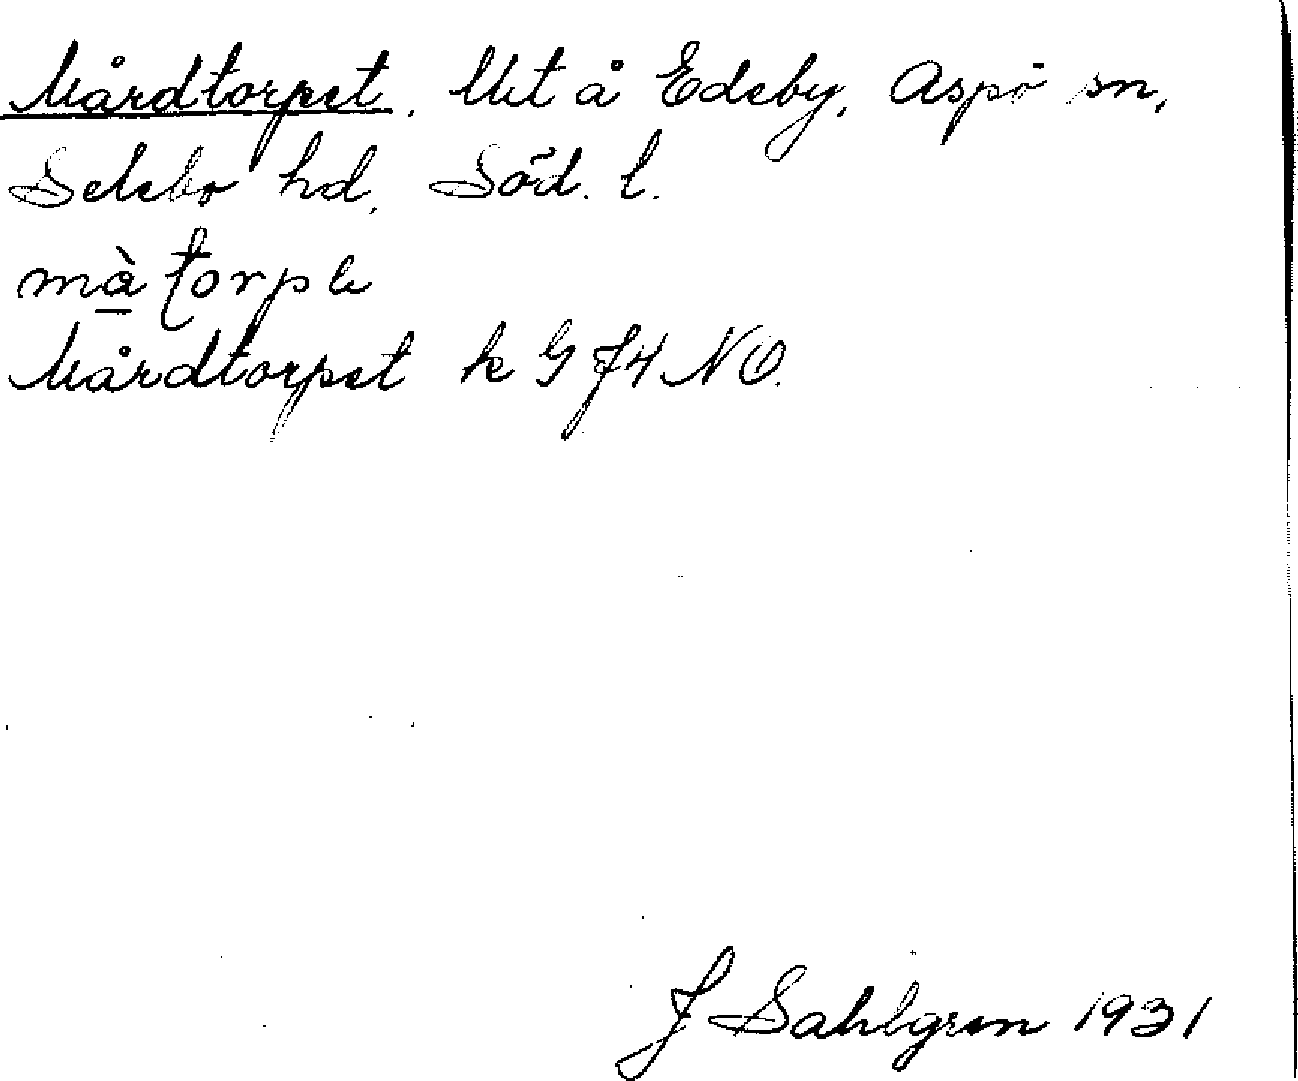 Mårdtorpet. Utst å Edeby, Aspö sn,
Selebo hd, Söd. l.
må̀torpe
Mårdtorpet k G J4 NO.
J Sahlgren 1931